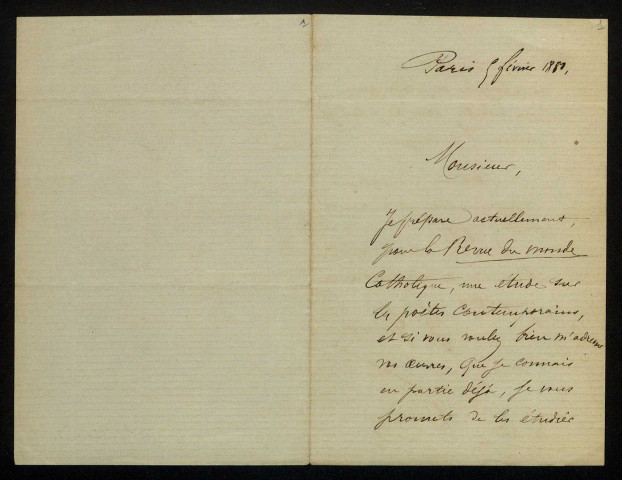 Paris 5 février 188
Monsieur,
Je prépare actuellement,
pour la Revue du monde
Catholique, une étude sur
les poètes contemporains,
et si vous voulez bien m'adresser
vos œuvres, que je connais
en partie déjà, je vous
promets de les étudier